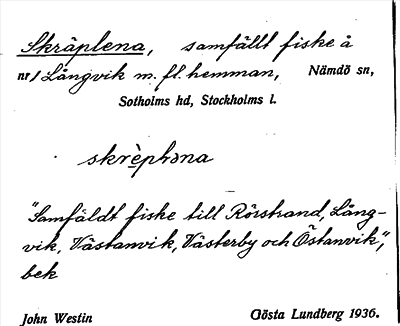 Skräplena, samfällt fiske å
nr 1 Långvik m. fl. hemman, Nämdö sn,
Sotholms hd, Stockholms l.
skrèplǝna
"Samfäldt fiske till Rörstrand, Lång-
vik, Västanvik, Västerby och Östanvik",
bek
John Westin Gösta Lundberg 1936.